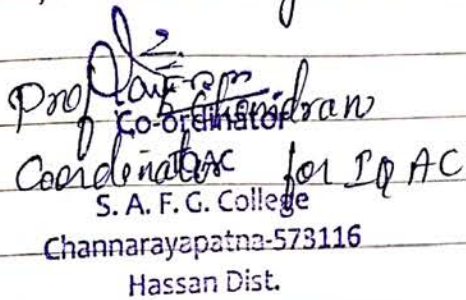 Prof
Co-ordinator
IQAC
Coordinator for IQ AC
S. A. F. G. College
Channarayapatna-573116
Hassan Dist.